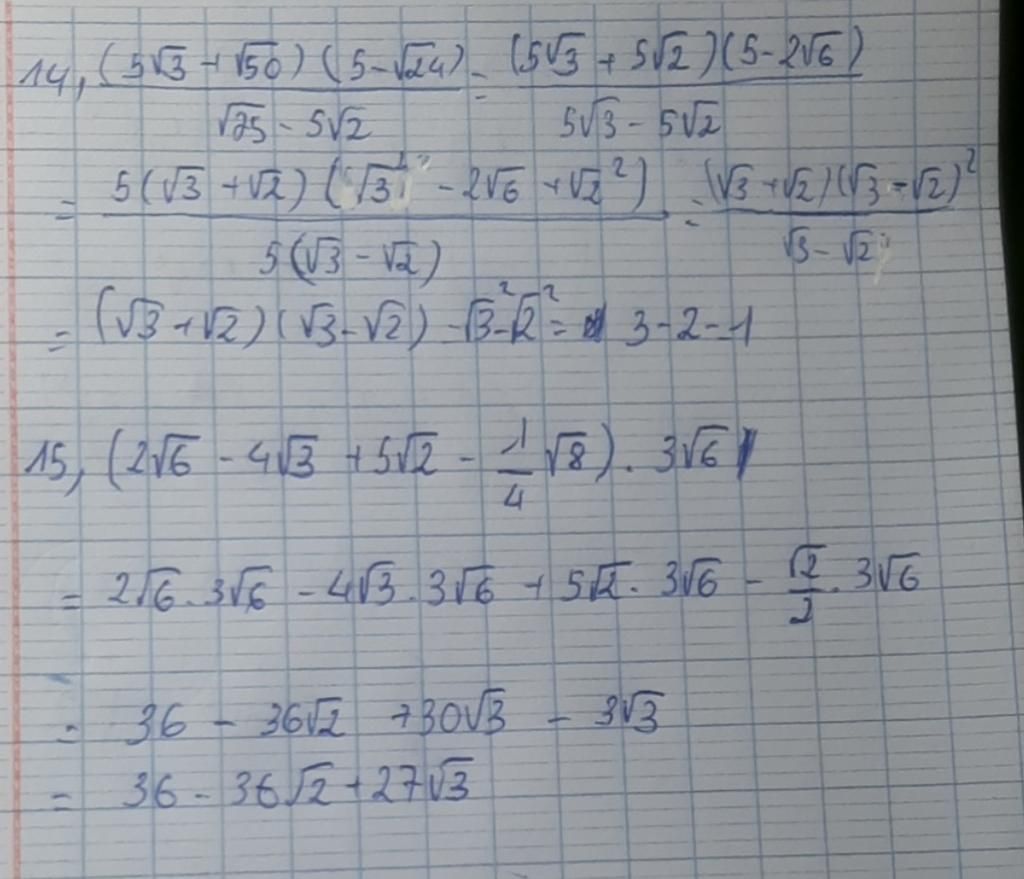 14, (5√3 + √50)(5-√24) / √25 - 5√2 = (5√3 + 5√2)(5-2√6) / 5√3 - 5√2
= 5(√3 +√2)(√3² - 2√6 +√2²) / 5(√3 - √2) = (√3 +√2)(√3 -√2)² / √3 - √2
= (√3 +√2)(√3 -√2) = √3² - √2² = 3 - 2 = 1
15, (2√6 - 4√3 + 5√2 - 1/4 √8) . 3√6
= 2√6 . 3√6 - 4√3 . 3√6 + 5√2 . 3√6 - √2/2 . 3√6
= 36 - 36√2 + 30√3 - 3√3
= 36 - 36√2 + 27√3